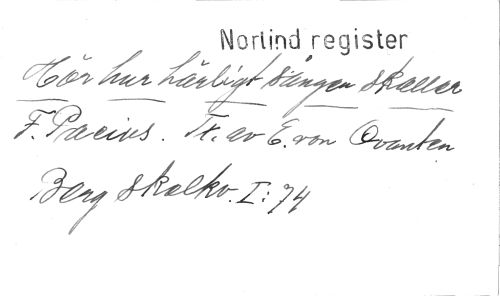 Norlind register
Hör hur härligt sången skallar
F. Pacius. Tt. av E. von Qvanten
Berg Skolkv. I: 74